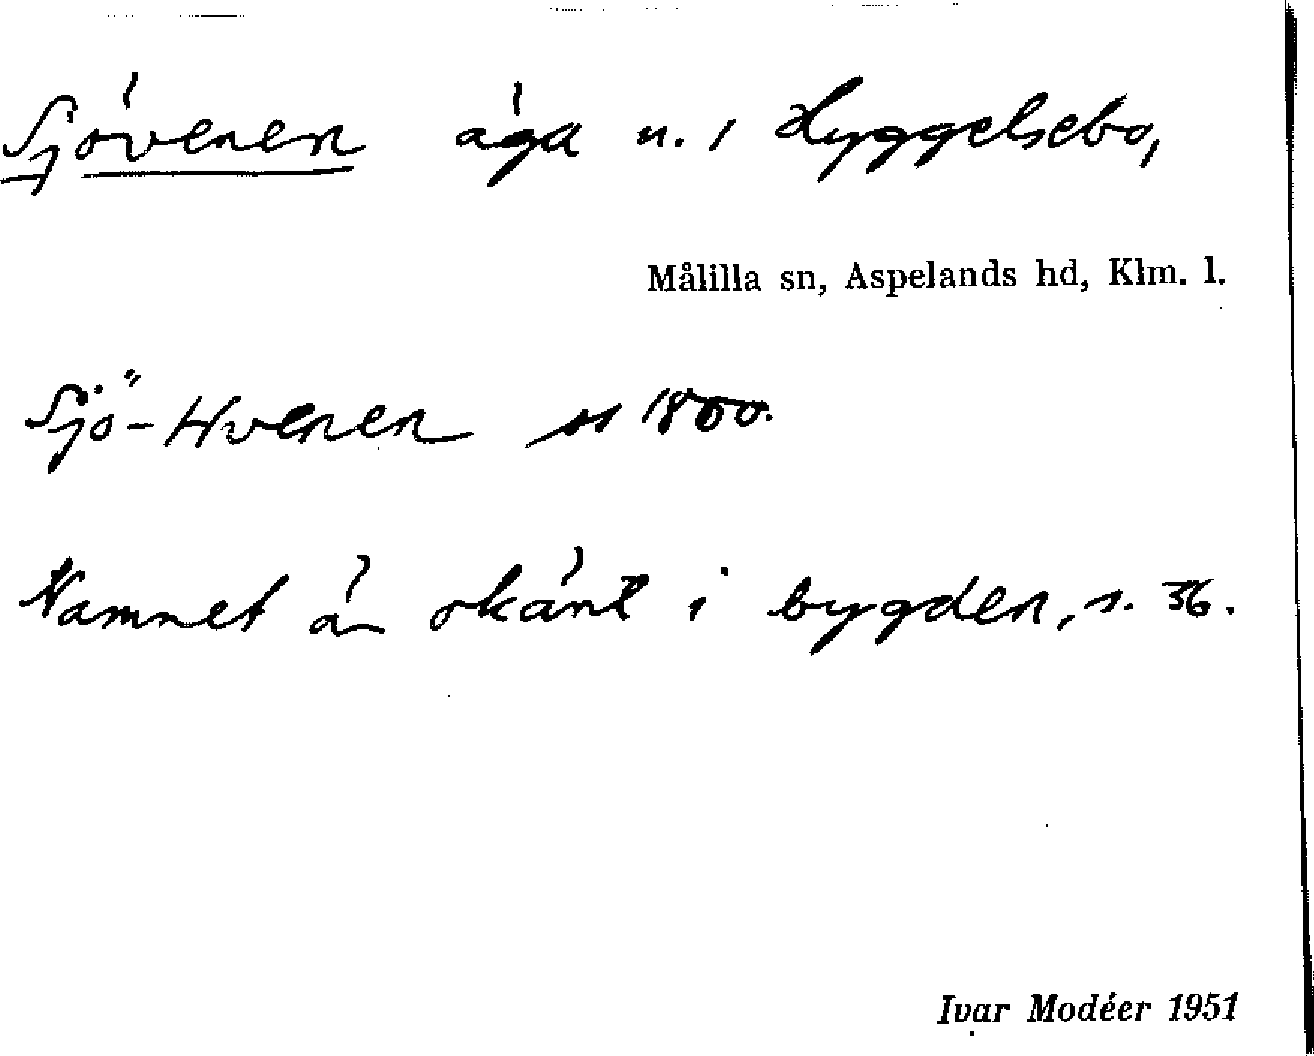 Sjövenen äga n. i Lyggelsebo,
Målilla sn, Aspelands hd, Klm. l.
Sjö-Hvenen 1800.
Namnet är okänt i bygden, s. 36.
Ivar Modéer 1951